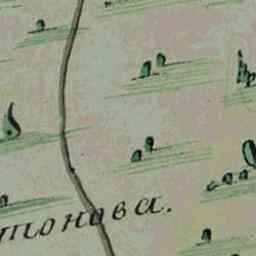 тонова.